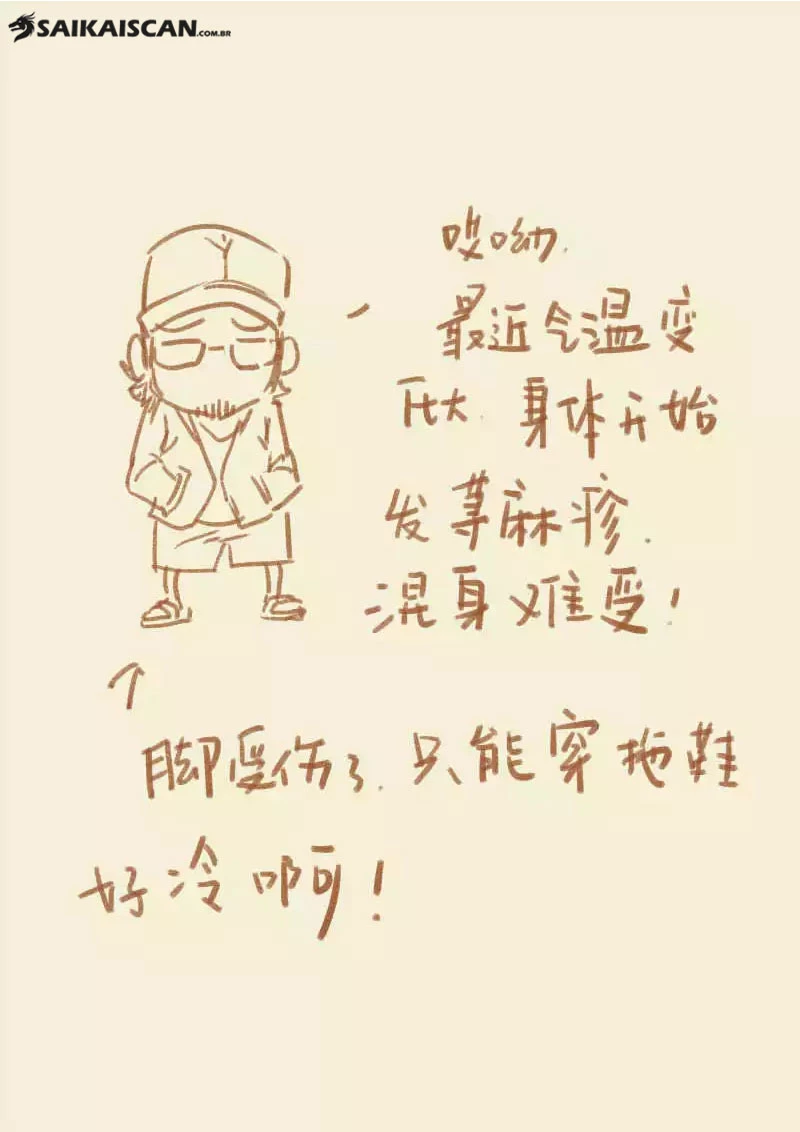 SAIKAISCAN.COM.BR
哎呦.
最近气温变
化大. 身体开始
发荨麻疹.
混身难受!
脚受伤了. 只能穿拖鞋
好冷啊!